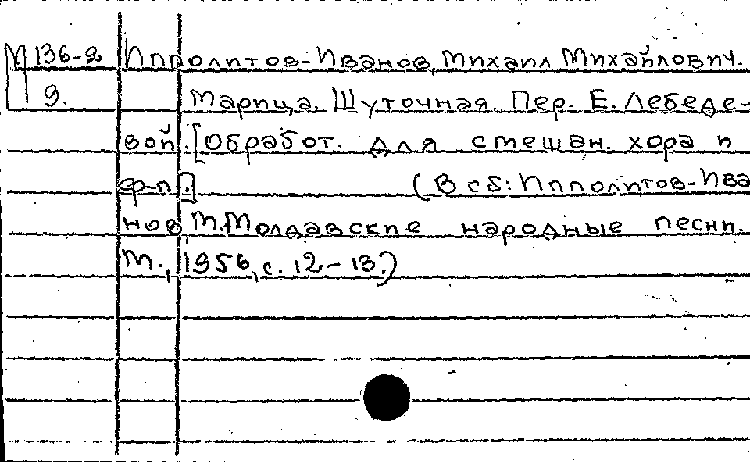 М 136-2 Ипполитов-Иванов, Михаил Михайлович.
9. Марица. Шуточная. Пер. Е. Лебеде-
вой. [Обработ. для смешан. хора и
ф-п.] (В сб: Ипполитов-Ива
нов М. Молдавские народные песни.
М., 1956, с. 12-13.)